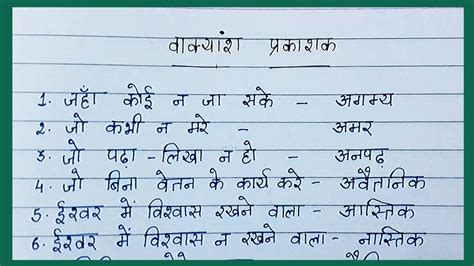 वाक्यांश प्रकाशक
1. जहाँ कोई न जा सके - अगम्य
2. जो कभी न मरे - अमर
3. जो पढ़ा - लिखा न हो - अनपढ़
4. जो बिना वेतन के कार्य करे - अवैतनिक
5. ईश्वर में विश्वास रखने वाला - आस्तिक
6. ईश्वर में विश्वास न रखने वाला - नास्तिक